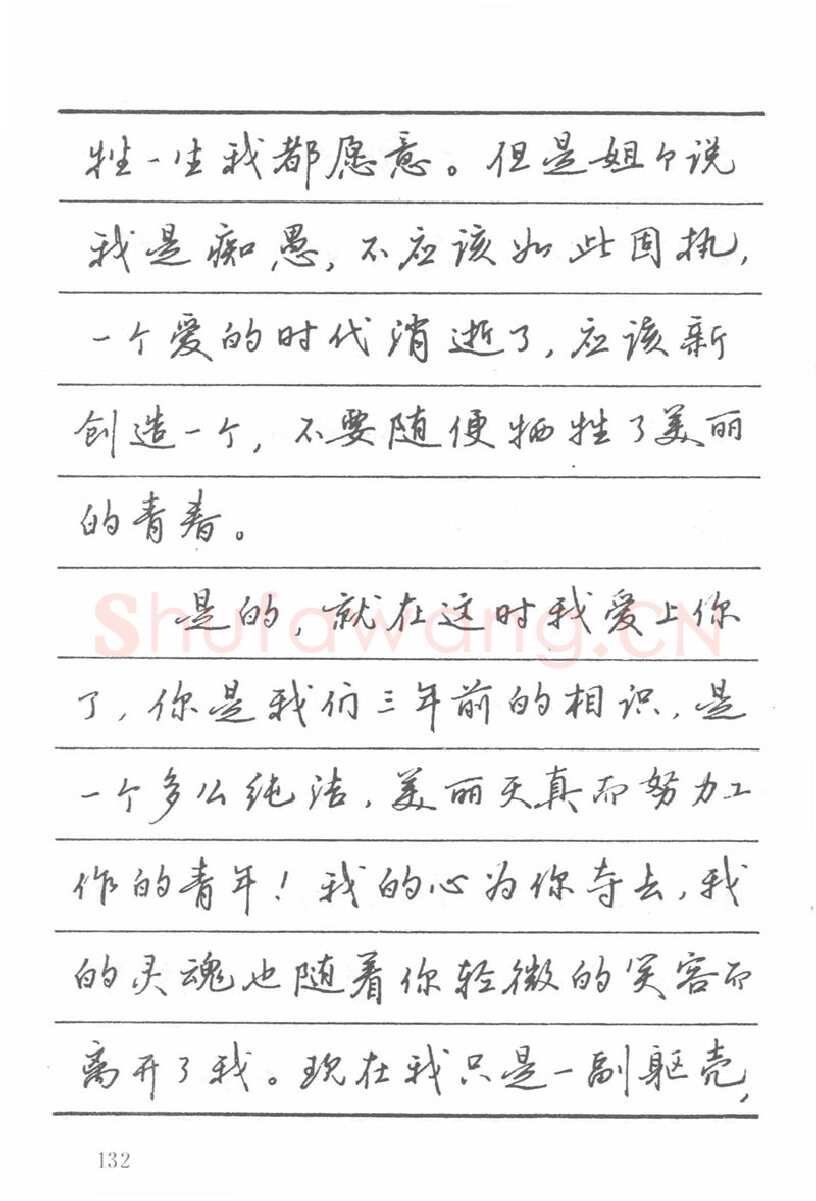 牲一生我都愿意。但是姐们说
我是痴愚,不应该如此固执,
一个爱的时代消逝了,应该新
创造一个,不要随便牺牲了美丽
的青春。
是的,就在这时我爱上你
了,你是我们三年前的相识,是
一个多么纯洁,美丽天真而努力工
作的青年!我的心为你夺去,我
的灵魂也随着你轻微的笑容而
离开了我。现在我只是一副躯壳,
132
Shufawang.CN